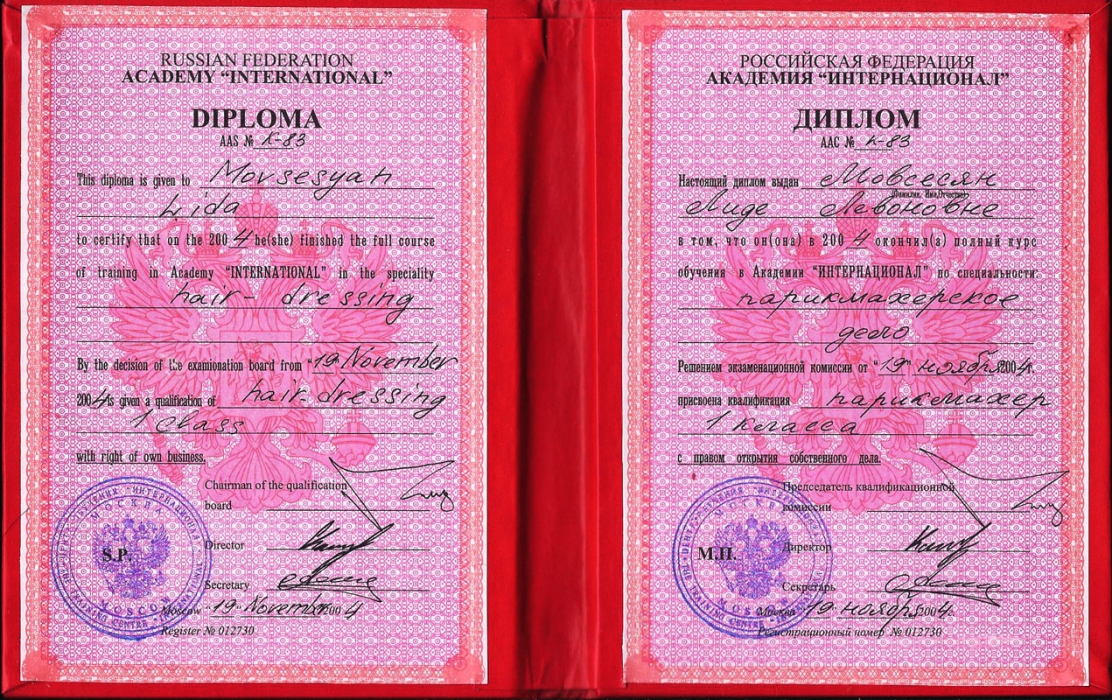 RUSSIAN FEDERATION
ACADEMY “INTERNATIONAL”
DIPLOMA
AAS № K-83
This diploma is given to Movsesyan
Lida
to certify that on the 2004 he(she) finished the full course
of training in Academy “INTERNATIONAL” in the speciality
hair-dressing
By the decision of the examionation board from “19” November
2004 is given a qualification of hair-dressing
1 class
with right of own business.
Chairman of the qualification
board
Director
S.P.
Secretary
Moscow “19” November 2004
Register № 012730
MOSCOW
МОСКВА
РОССИЙСКАЯ ФЕДЕРАЦИЯ
АКАДЕМИЯ “ИНТЕРНАЦИОНАЛ”
ДИПЛОМ
ААС № К-83
Настоящий диплом выдан Мовсесян
(Фамилия, Имя, Отчество)
Лиде Левоновне
в том, что он(она) в 2004 окончил(а) полный курс
обучения в Академии “ИНТЕРНАЦИОНАЛ” по специальности:
парикмахерское
дело
Решением экзаменационной комиссии от “19” ноября 2004г.
присвоена квалификация парикмахер
1 класса
с правом открытия собственного дела.
Председатель квалификационной
комиссии
Директор
М.П.
Секретарь
Москва 19 ноября 2004г.
Регистрационный номер № 012730